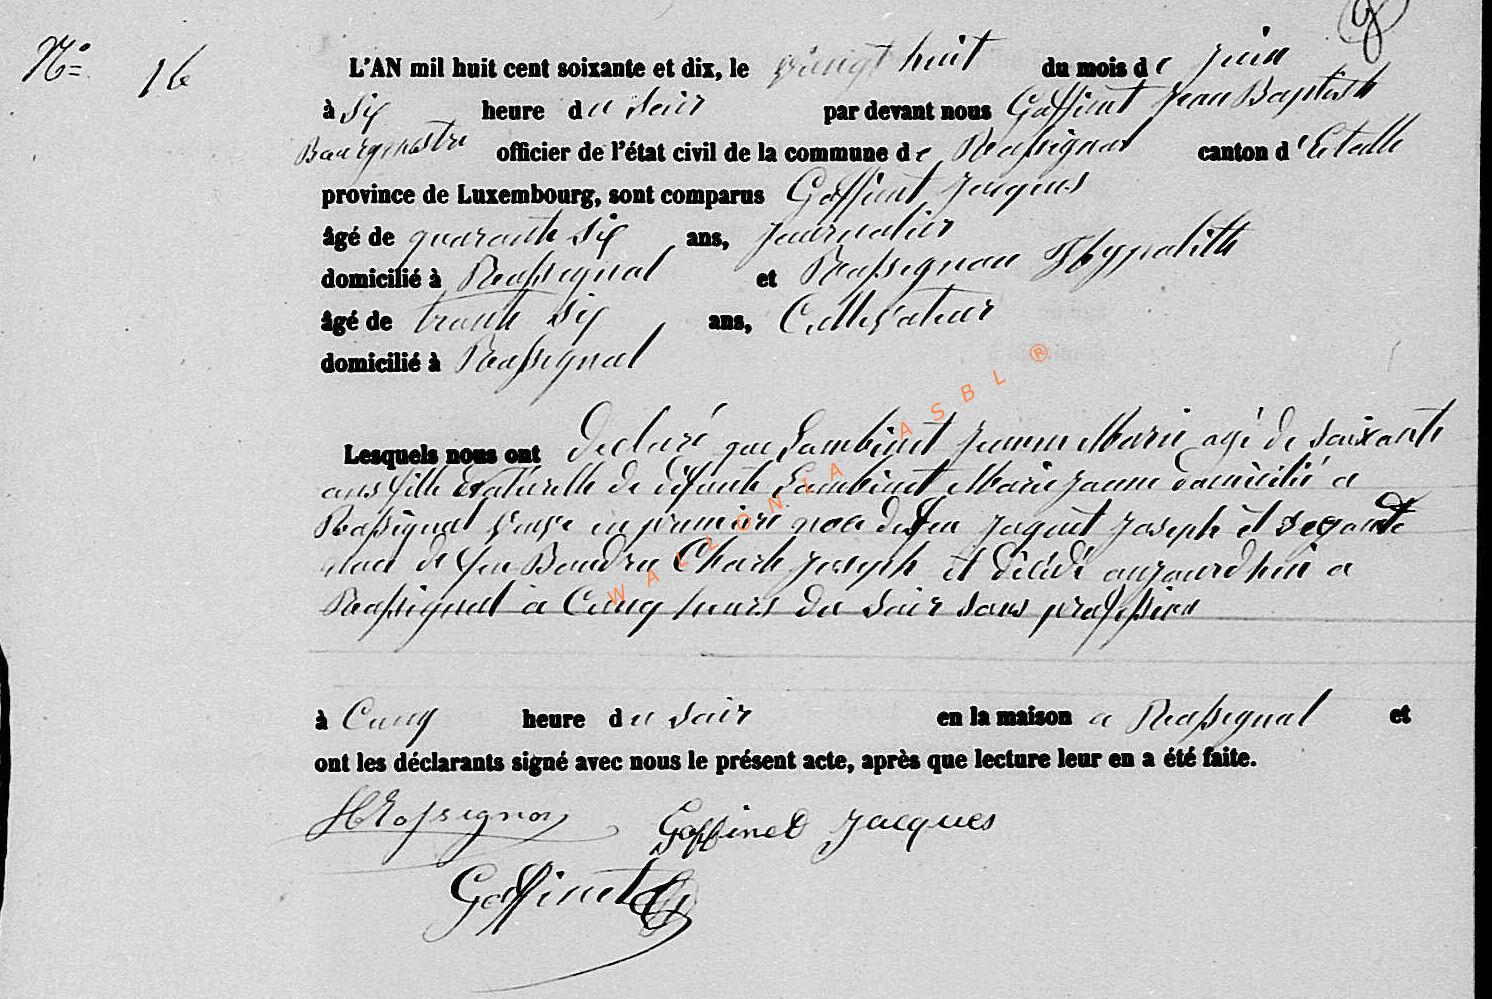 N° 16
L'AN mil huit cent soixante et dix, le vingt huit du mois de juin
à six heure du soir par devant nous Goffinet Jean Baptiste
Bourgmestre officier de l'état civil de la commune de Rossignol canton d'Etalle
province de Luxembourg, sont comparus Goffinet Jacques
âgé de quarante six ans, journalier
domicilié à Rossignol et Rossignon Hypolithe
âgé de trente six ans, Cultivateur
domicilié à Rossignol
Lesquels nous ont declaré que Lambinet Jeanne Marie agé de soixante
ans fille Naturelle de défunte Lambinet Marie Jeanne domicilié a
Rossignol veuve en premiere noce de feu Jaquet Joseph et segonde
noce de feu Baudru Charle Joseph et décédé aujourdhui a
Rossignol a Cinq heures du soir sans profession
à Cinq heure du soir en la maison a Rossignol et
ont les déclarants signé avec nous le présent acte, après que lecture leur en a été faite.
HRossignon Goffinet Jacques
Goffinet
WALLONIA ASBL ®